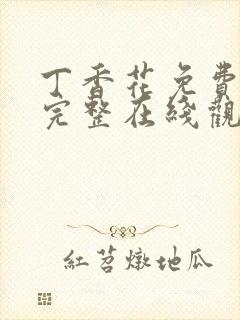 丁香花免費
完整在綫觀
紅苕燉地瓜